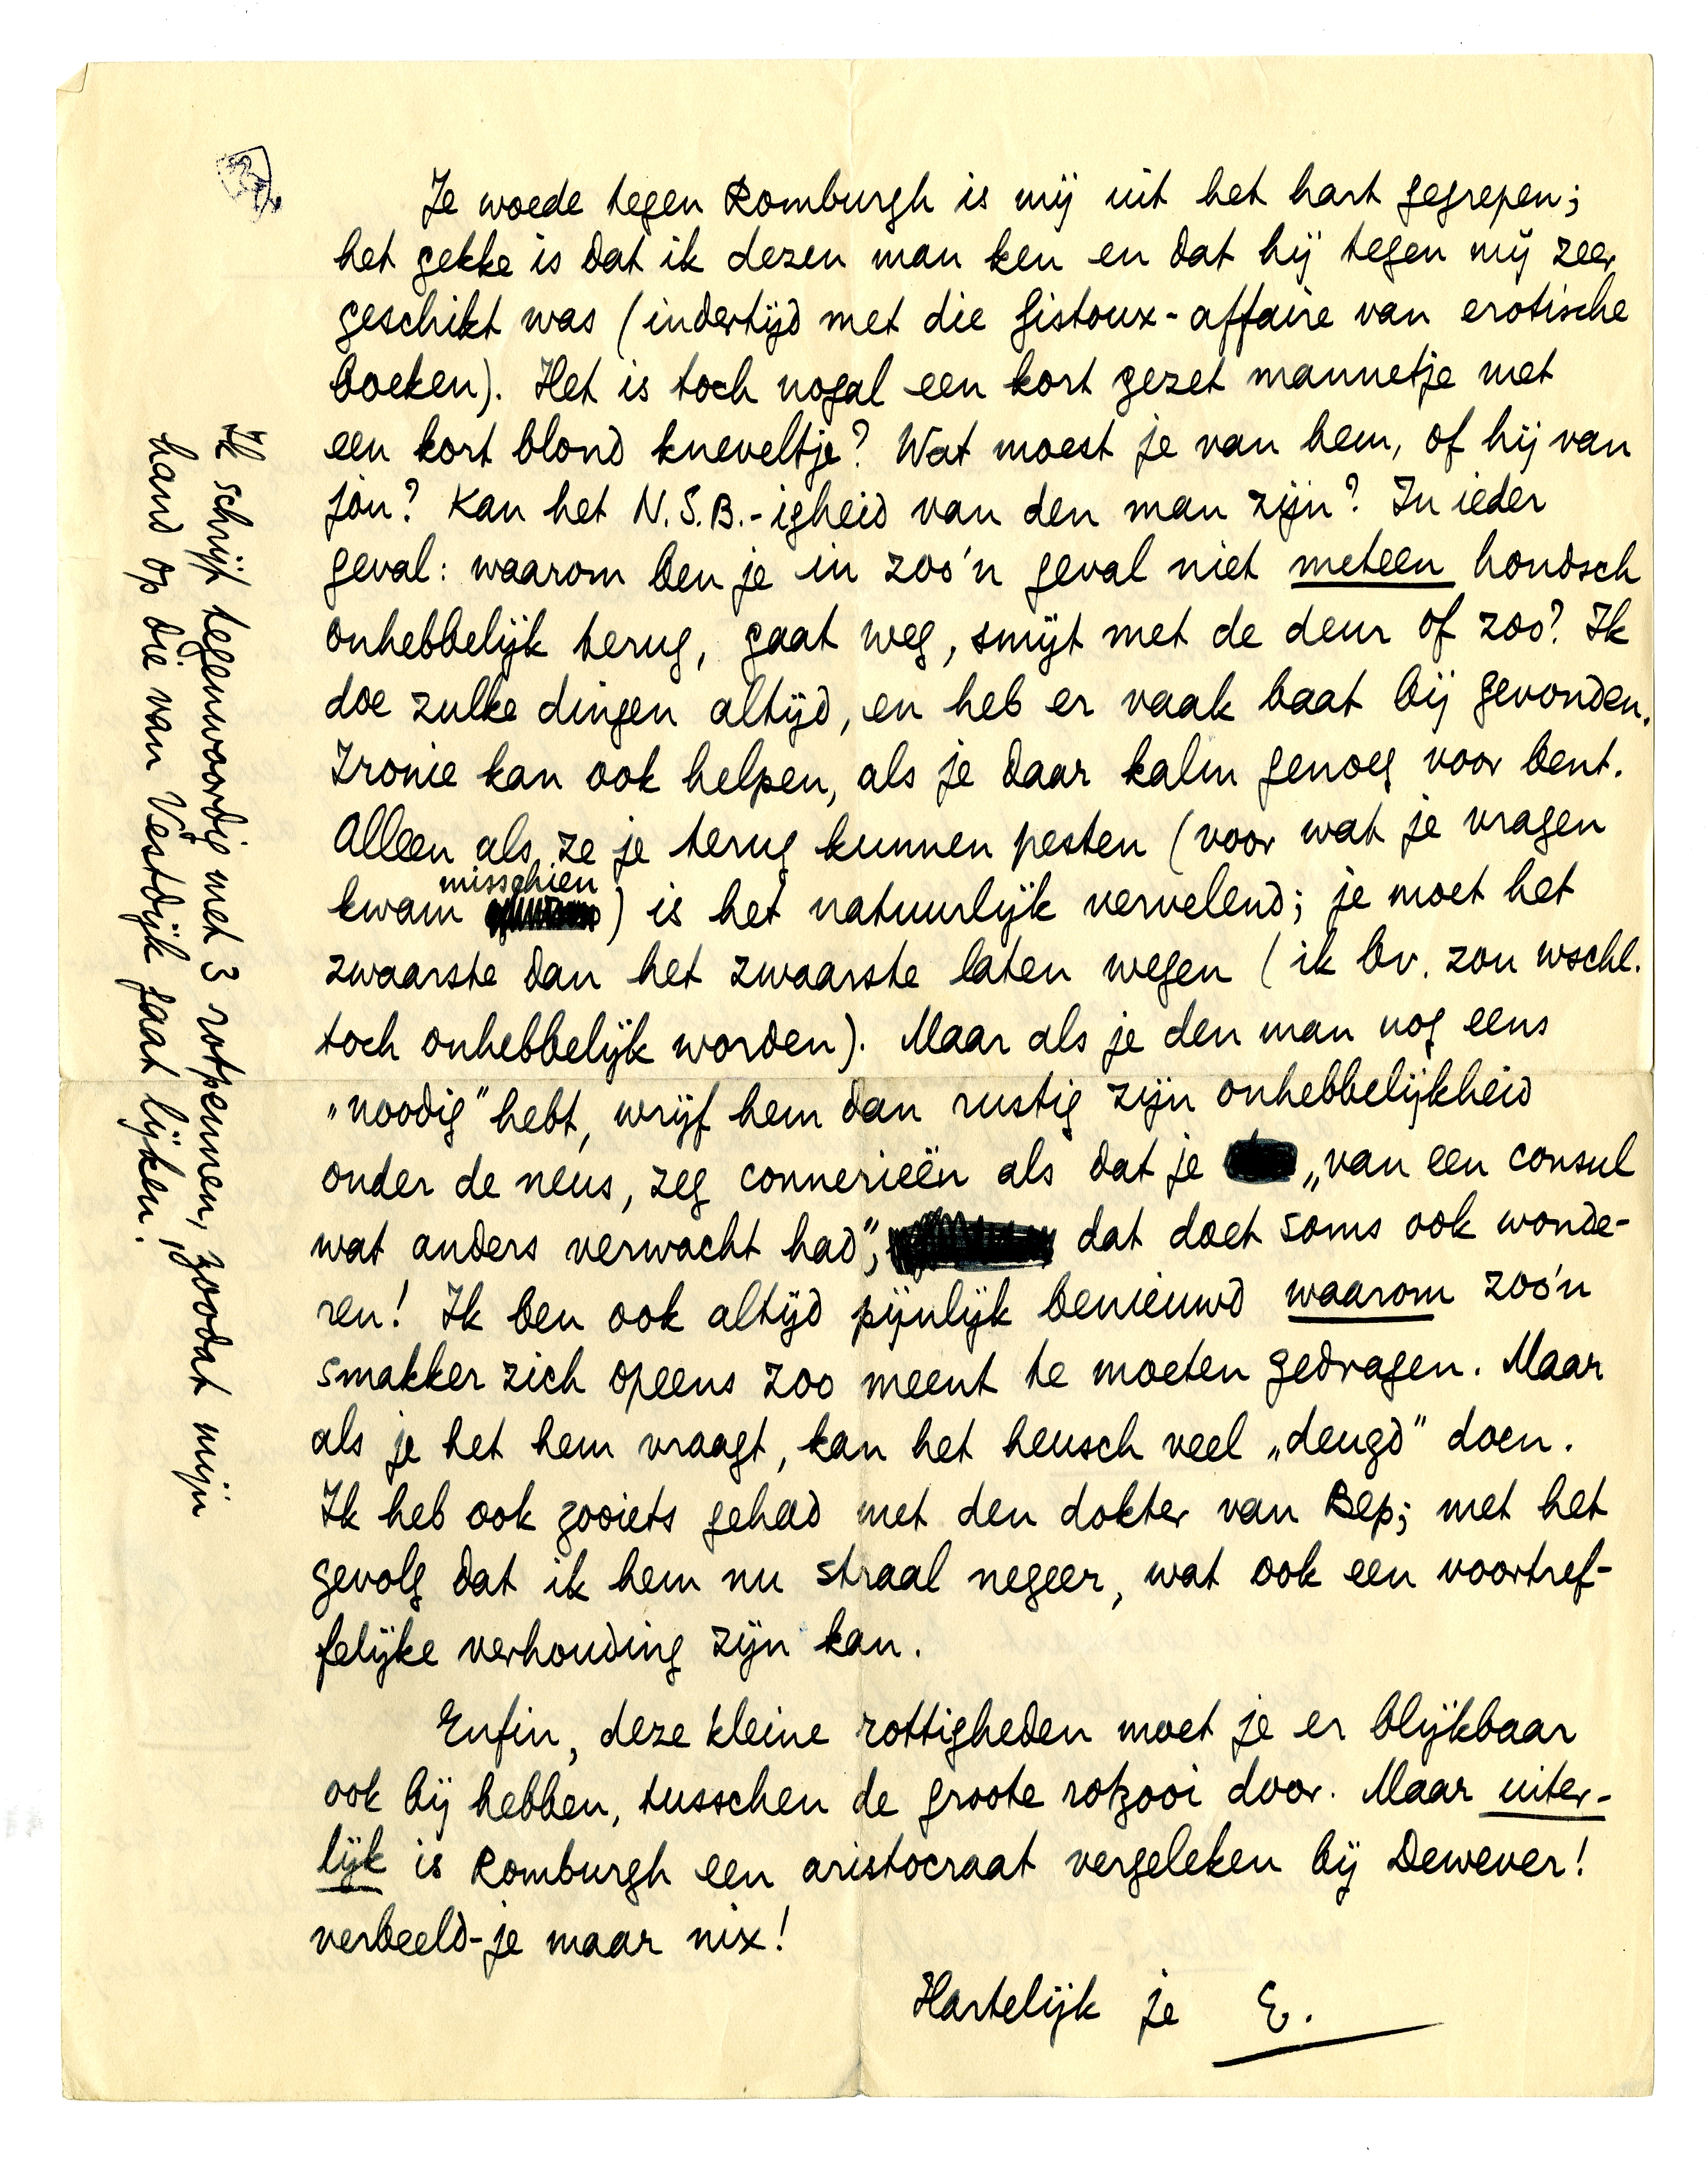 Je woede tegen Romburgh is mij uit het hart gegrepen;
het gekke is dat ik dezen man ken en dat hij tegen mij zeer
geschikt was (indertijd met die Gistoux-affaire van erotische
boeken). Het is toch nogal een kort gezet mannetje met
een kort blond kneveltje? Wat moest je van hem, of hij van
jou? Kan het N.S.B.-igheid van den man zijn? In ieder
geval: waarom ben je in zoo'n geval niet meteen hondsch
onhebbelijk terug, gaat weg, smijt met de deur of zoo? Ik
doe zulke dingen altijd, en heb er vaak baat bij gevonden.
Ironie kan ook helpen, als je daar kalm genoeg voor bent.
Alleen als ze je terug kunnen pesten (voor wat je vragen
kwam misschien) is het natuurlijk vervelend; je moet het
zwaarste dan het zwaarste laten wegen (ik bv. zou wschl.
toch onhebbelijk worden). Maar als je den man nog eens
„noodig" hebt, wrijf hem dan rustig zijn onhebbelijkheid
onder de neus, zeg connerieën als dat je „van een consul
wat anders verwacht had", dat doet soms ook wonde-
ren! Ik ben ook altijd pijnlijk benieuwd waarom zoo'n
smakker zich opeens zoo meent te moeten gedragen. Maar
als je het hem vraagt, kan het heusch veel „deugd" doen.
Ik heb ook zooiets gehad met den dokter van Bep; met het
gevolg dat ik hem nu straal negeer, wat ook een voortref-
felijke verhouding zijn kan.
Enfin, deze kleine rottigheden moet je er blijkbaar
ook bij hebben, tusschen de groote rotzooi door. Maar uiter-
lijk is Romburgh een aristocraat vergeleken bij Dewever!
verbeeld-je maar nix!
Hartelijk je E.
Ik schrijf tegenwoordig met 3 rotpennen, zoodat mijn
hand op die van Vestdijk gaat lijken.